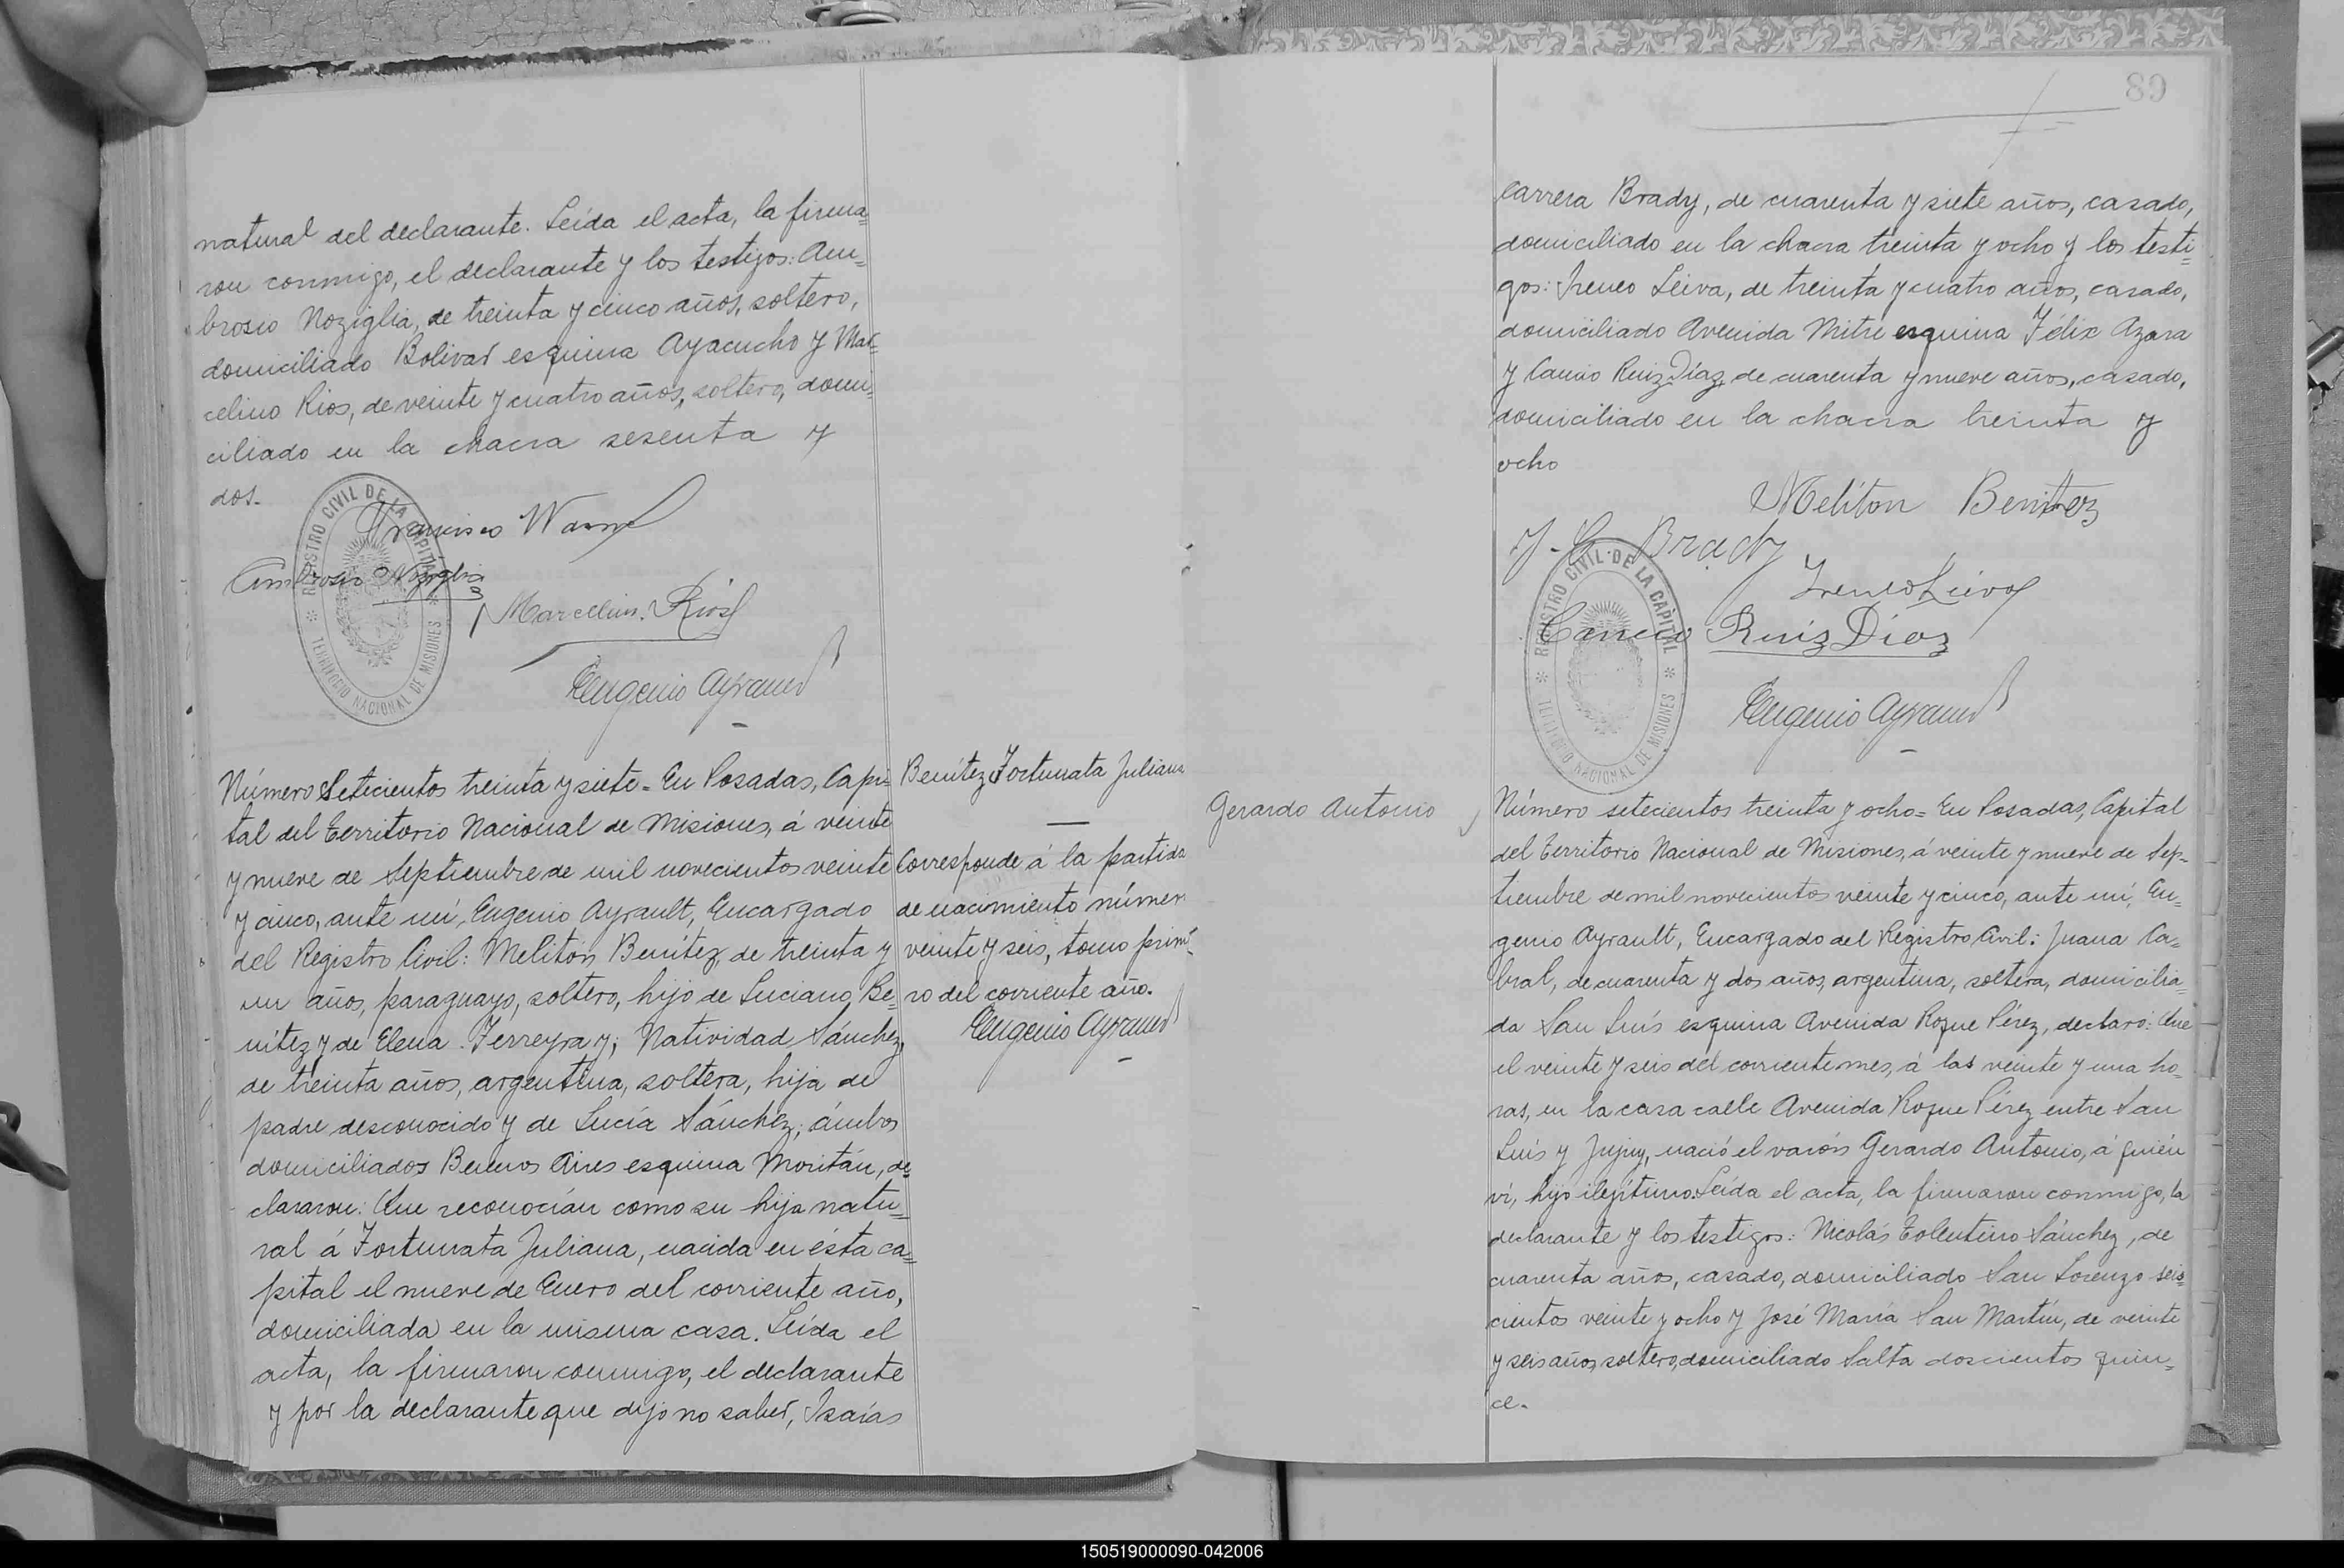 natural del declarante. Leída el acta, la firma=
ron conmigo, el declarante y los testigos: Am=
brosio Noziglia, de treinta y cinco años, soltero,
domiciliado Bolivar esquina Ayacucho y Mar=
celino Rios, de veinte y cuatro años, soltero, domi=
ciliado en la chacra sesenta y
dos.
REGISTRO CIVIL DE LA CAPITAL
TERRITORIO NACIONAL DE MISIONES
Francisco
Ambrosio Noziglia
Marcelino Rios
Eugenio Ayrault
Número Setecientos treinta y siete = En Posadas, Capi=
tal del Territorio Nacional de Misiones, á veinte
y nueve de Septiembre de mil novecientos veinte
y cinco, ante mí, Eugenio Ayrault, Encargado
del Registro Civil: Melitón Benítez, de treinta y
un años, paraguayo, soltero, hijo de Luciano Be=
nítez y de Elena Ferreyra y; Natividad Sánchez,
de treinta años, argentina, soltera, hija de
padre desconocido y de Lucía Sánchez; ámbos
domiciliados Buenos Aires esquina Moritán, de=
clararon: Que reconocían como su hija natu=
ral á Fortunata Juliana, nacida en ésta ca=
pital el nueve de Enero del corriente año,
domiciliada en la misma casa. Leída el
acta, la firmaron conmigo, el declarante
y por la declarante que dijo no saber, Isaías
Benítez Fortunata Juliana
Corresponde á la partida
de nacimiento número
veinte y seis, tomo prim=
ro del corriente año.
Eugenio Ayrault
80
Carrera Brady, de cuarenta y siete años, casado,
domiciliado en la chacra treinta y ocho y los testi=
gos: Ireneo Leiva, de treinta y cuatro años, casado,
domiciliado Avenida Mitre esquina Félix Azara
y Cancio Ruiz Díaz, de cuarenta y nueve años, casado,
domiciliado en la chacra treinta y
ocho
Melitón Benitez
Y. C. Brady
Ireneo Leiva
Cancio Ruiz Diaz
REGISTRO CIVIL DE LA CAPITAL
TERRITORIO NACIONAL DE MISIONES
Eugenio Ayrault
Gerardo Antonio
Número setecientos treinta y ocho = En Posadas, Capital
del Territorio Nacional de Misiones, á veinte y nueve de Sep=
tiembre de mil novecientos veinte y cinco, ante mí, Eu=
genio Ayrault, Encargado del Registro Civil: Juana Ca=
bral, de cuarenta y dos años, argentina, soltera, domicilia=
da San Luís esquina Avenida Roque Pérez, declaró: Que
el veinte y seis del corriente mes, á las veinte y una ho=
ras, en la casa calle Avenida Roque Pérez entre San
Luís y Jujuy, nació el varón Gerardo Antonio, á quién
ví, hijo ilegítimo. Leída el acta, la firmaron conmigo, la
declarante y los testigos: Nicolás Tolentino Sánchez, de
cuarenta años, casado, domiciliado San Lorenzo seis=
cientos veinte y ocho y José María San Martín, de veinte
y seis años, soltero, domiciliado Salta doscientos quin=
ce.
150519000090-042006